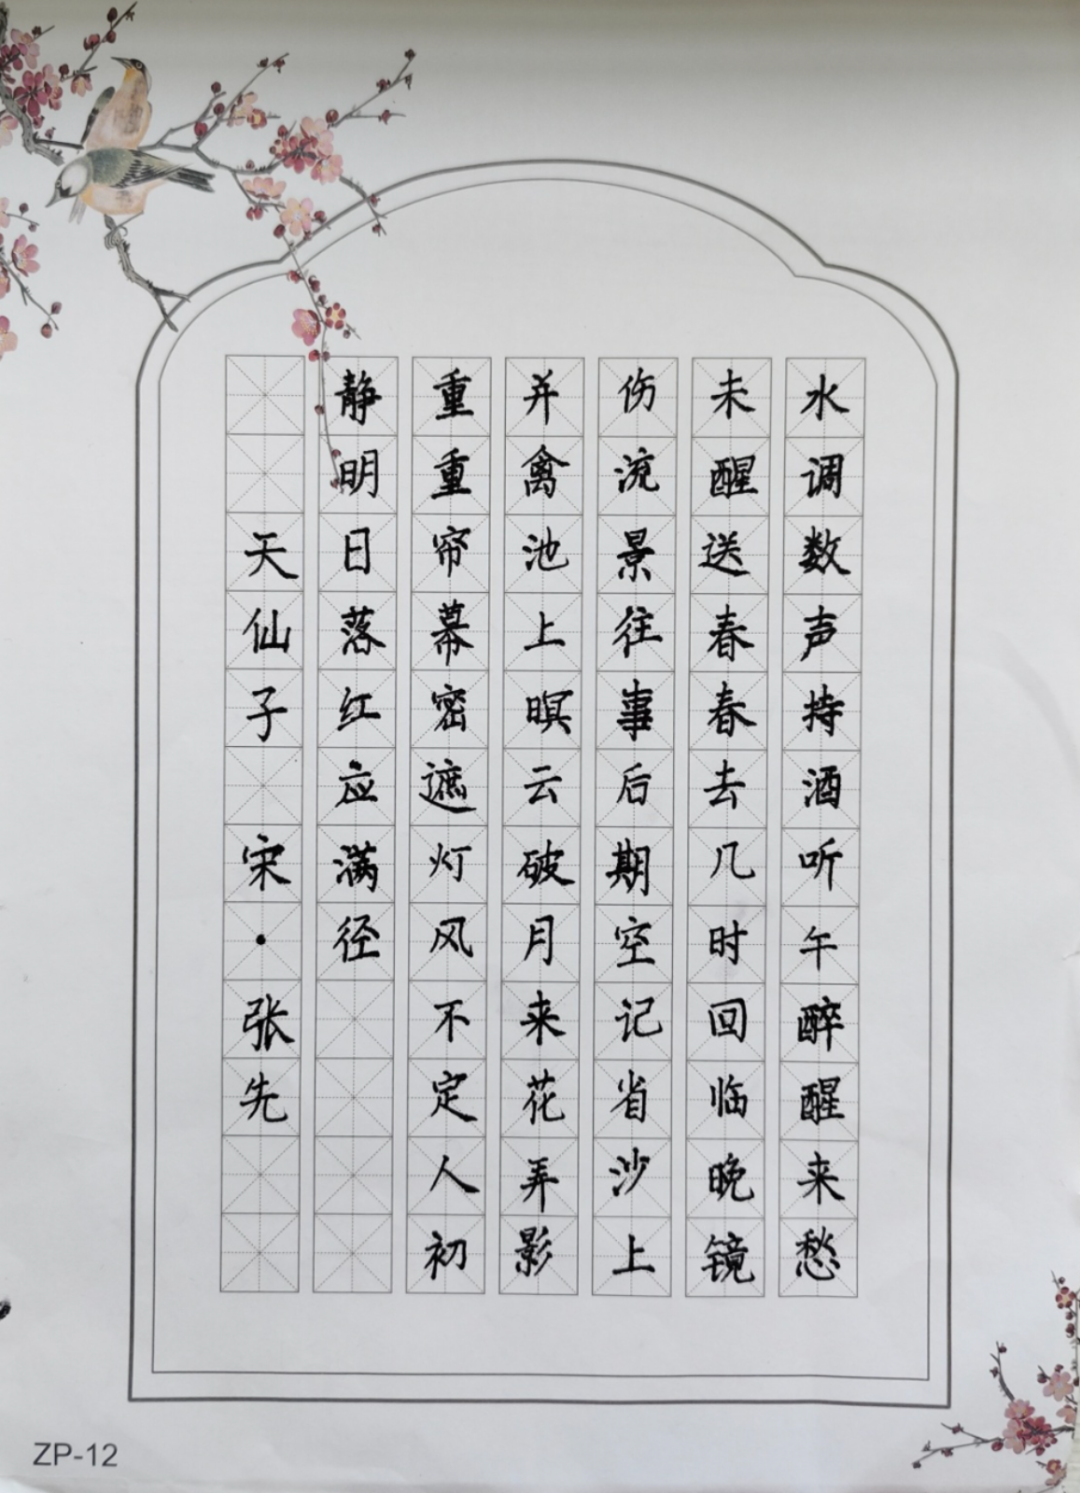 水调数声持酒听午醉醒来愁
未醒送春春去几时回临晚镜
伤流景往事后期空记省沙上
并禽池上暝云破月来花弄影
重重帘幕密遮灯风不定人初
静明日落红应满径
天仙子 宋·张先
ZP-12